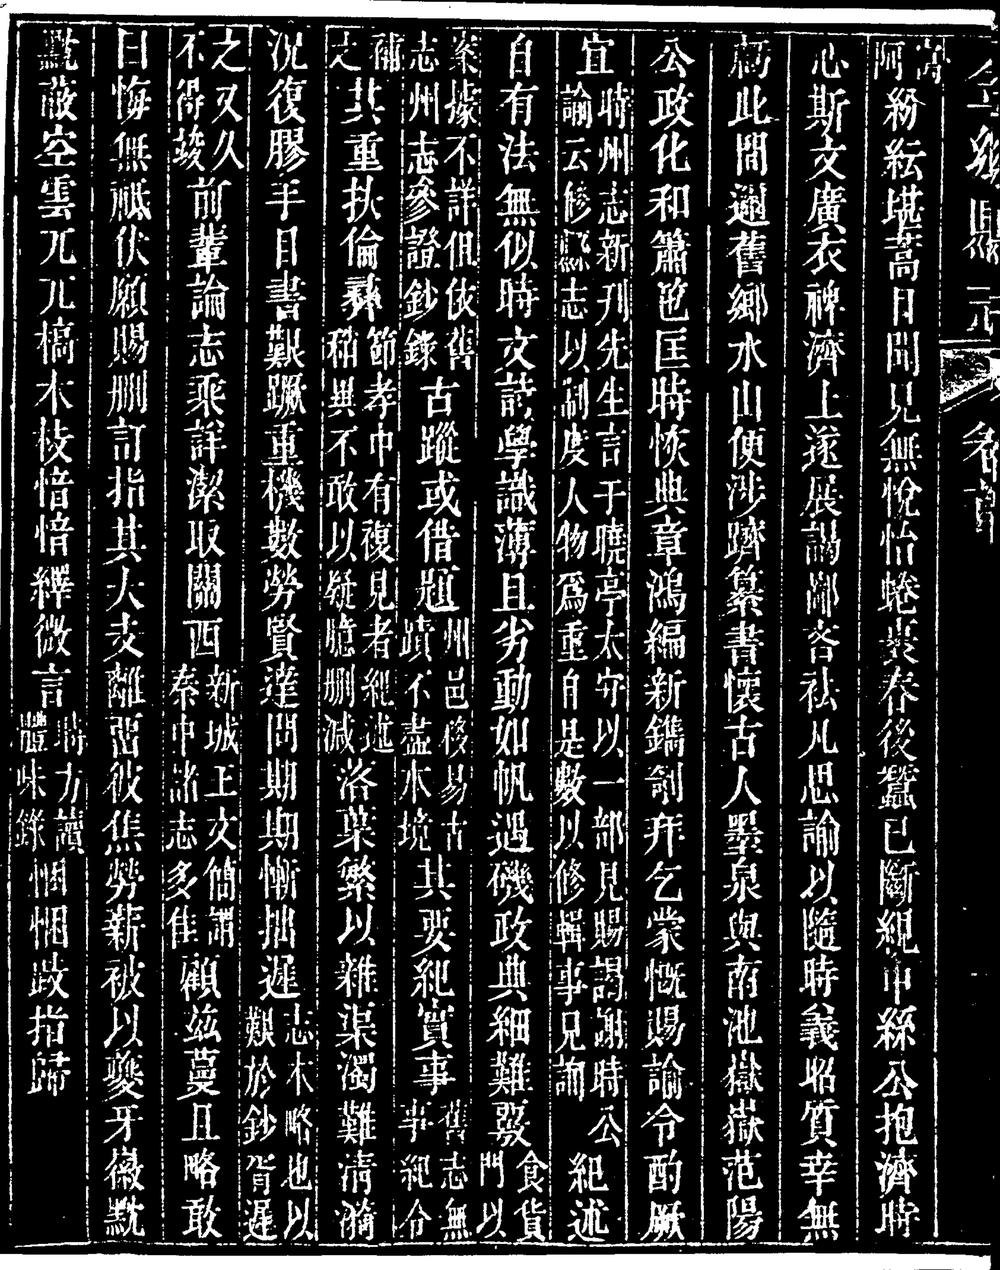 金鄉縣志 卷首
阿嵩紛紜堪蒿目聞見無悅怡蜷裘春後蠶已斷緄巾絲公抱濟時
心斯文廣衣裨濟上遂展謁鄙吝祛凡思諭以隨時義昭質幸無
虧此間邇舊鄉水山便涉躋纂書懷古人墨泉與南池嶽嶽范陽
公政化和簫笆匡時恢典章鴻編新鐫剞拜乞蒙慨賜諭令酌厥
宜時州志新刋先生言于曉亭太守以一部見賜謁謝時公諭云修縣志以制度人物爲重自是數以修輯事見詢紀述
自有法無似時文詩學識薄且劣動如帆過磯政典細難發食貨門以
案據不詳但依舊志州志參證鈔錄古蹤或借題州邑移易古蹟不盡本境其要紀實事舊志無事紀今
補之其重扶倫彝節孝中有複見者紀述稍異不敢以疑臆刪減落葉繁以雜渠濁難淸漪
況復膠手目書艱蹶重機數勞賢達問期期慚拙遲志本略也以艱於鈔胥遲
之又久不得竣前輩論志乘詳潔取關西新城王文簡謂秦中諸志多佳顧茲蔓且略敢
曰悔無祗伏願賜刪訂指其大支離啚彼焦勞薪被以夔牙徽黕
黕蔽空雲兀兀槁木枝愔愔繹微言時方讀醴味錄悃悃跂指歸